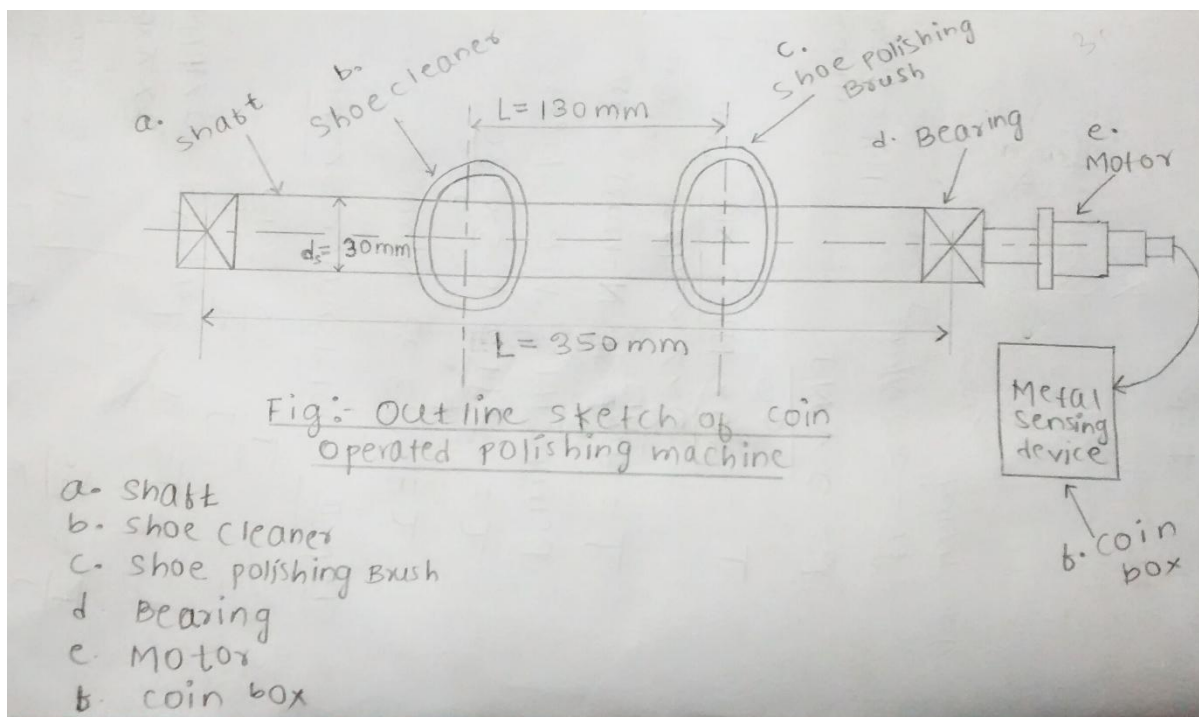 b.
shoe cleaner
c.
shoe polishing
Brush
a.
shaft
L= 130mm
d. Bearing
e.
Motor
ds= 30mm
L= 350mm
Metal
sensing
device
Fig:- Outline sketch of coin
operated polishing machine
f. coin
box
a. shaft
b. shoe cleaner
c. shoe polishing Brush
d Bearing
e. Motor
f. coin box